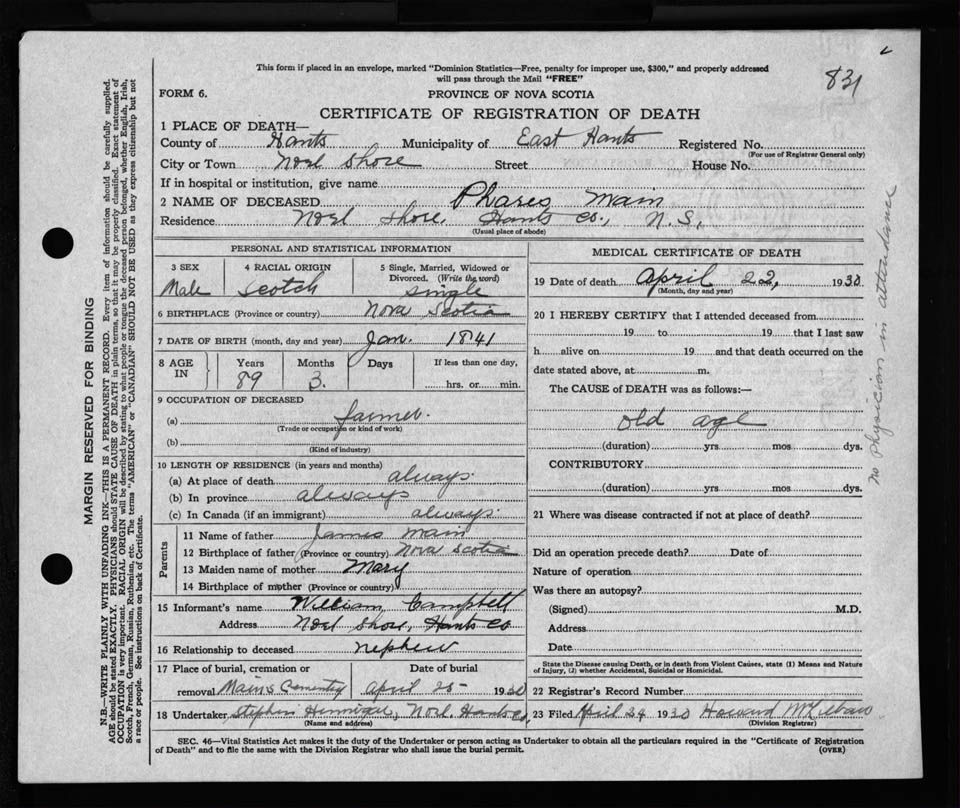 This form if placed in an envelope, marked "Dominion Statistics—Free, penalty for improper use, $300," and properly addressed
will pass through the Mail "FREE"
831
FORM 6.
PROVINCE OF NOVA SCOTIA
CERTIFICATE OF REGISTRATION OF DEATH
1 PLACE OF DEATH—
County of Hants Municipality of East Hants Registered No.
(For use of Registrar General only)
City or Town Noel Shore Street House No.
If in hospital or institution, give name
2 NAME OF DECEASED Phares Main
Residence Noel Shore, Hants Co., N.S.,
(Usual place of abode)
PERSONAL AND STATISTICAL INFORMATION
3 SEX 4 RACIAL ORIGIN 5 Single, Married, Widowed or
Divorced. (Write the word)
Male Scotch single
6 BIRTHPLACE (Province or country) Nova Scotia
7 DATE OF BIRTH (month, day and year) Jan. 1841
8 AGE IN Years Months Days If less than one day,
89 3. hrs. or min.
9 OCCUPATION OF DECEASED
(a) farmer.
(Trade or occupation or kind of work)
(b)
(Kind of industry)
10 LENGTH OF RESIDENCE (in years and months)
(a) At place of death always
(b) In province always
(c) In Canada (if an immigrant) always
Parents
11 Name of father James Main
12 Birthplace of father (Province or country) Nova Scotia
13 Maiden name of mother Mary
14 Birthplace of mother (Province or country)
15 Informant's name William Campbell
Address Noel Shore, Hants Co
16 Relationship to deceased nephew
17 Place of burial, cremation or Date of burial
removal Mains Cemetery April 25 1930
18 Undertaker Stephen Hennigar, Noel Hants Co.
(Name and address)
MEDICAL CERTIFICATE OF DEATH
19 Date of death April 22, 1930
(Month, day and year)
20 I HEREBY CERTIFY that I attended deceased from
19 to 19 that I last saw
h alive on 19 and that death occurred on the
date stated above, at m.
The CAUSE of DEATH was as follows:—
old age
(duration) yrs mos dys.
CONTRIBUTORY
(duration) yrs. mos. dys.
21 Where was disease contracted if not at place of death?
Did an operation precede death? Date of
Nature of operation
Was there an autopsy?
(Signed) M.D.
Address
Date
State the Disease causing Death, or in death from Violent Causes, state (1) Means and Nature
of Injury, (2) whether Accidental, Suicidal or Homicidal.
22 Registrar's Record Number
23 Filed April 24 1930 Howard
(Division Registrar)
SEC. 46—Vital Statistics Act makes it the duty of the Undertaker or person acting as Undertaker to obtain all the particulars required in the "Certificate of Registration
of Death" and to file the same with the Division Registrar who shall issue the burial permit.
(OVER)
no Physician in attendance
MARGIN RESERVED FOR BINDING
N.B.—WRITE PLAINLY WITH UNFADING INK—THIS IS A PERMANENT RECORD. Every item of information should be carefully supplied.
AGE should be stated EXACTLY. PHYSICIANS should STATE CAUSE OF DEATH in plain terms, so that it may be properly classified. Exact statement of
OCCUPATION is very important. RACIAL ORIGIN will be described by stating to what people or tongue the deceased person belonged, whether English, Irish,
Scotch, French, German, Russian, Ruthenian, etc. The terms "AMERICAN" or "CANADIAN" SHOULD NOT BE USED as they express citizenship but not
a race or people. See instructions on back of Certificate.